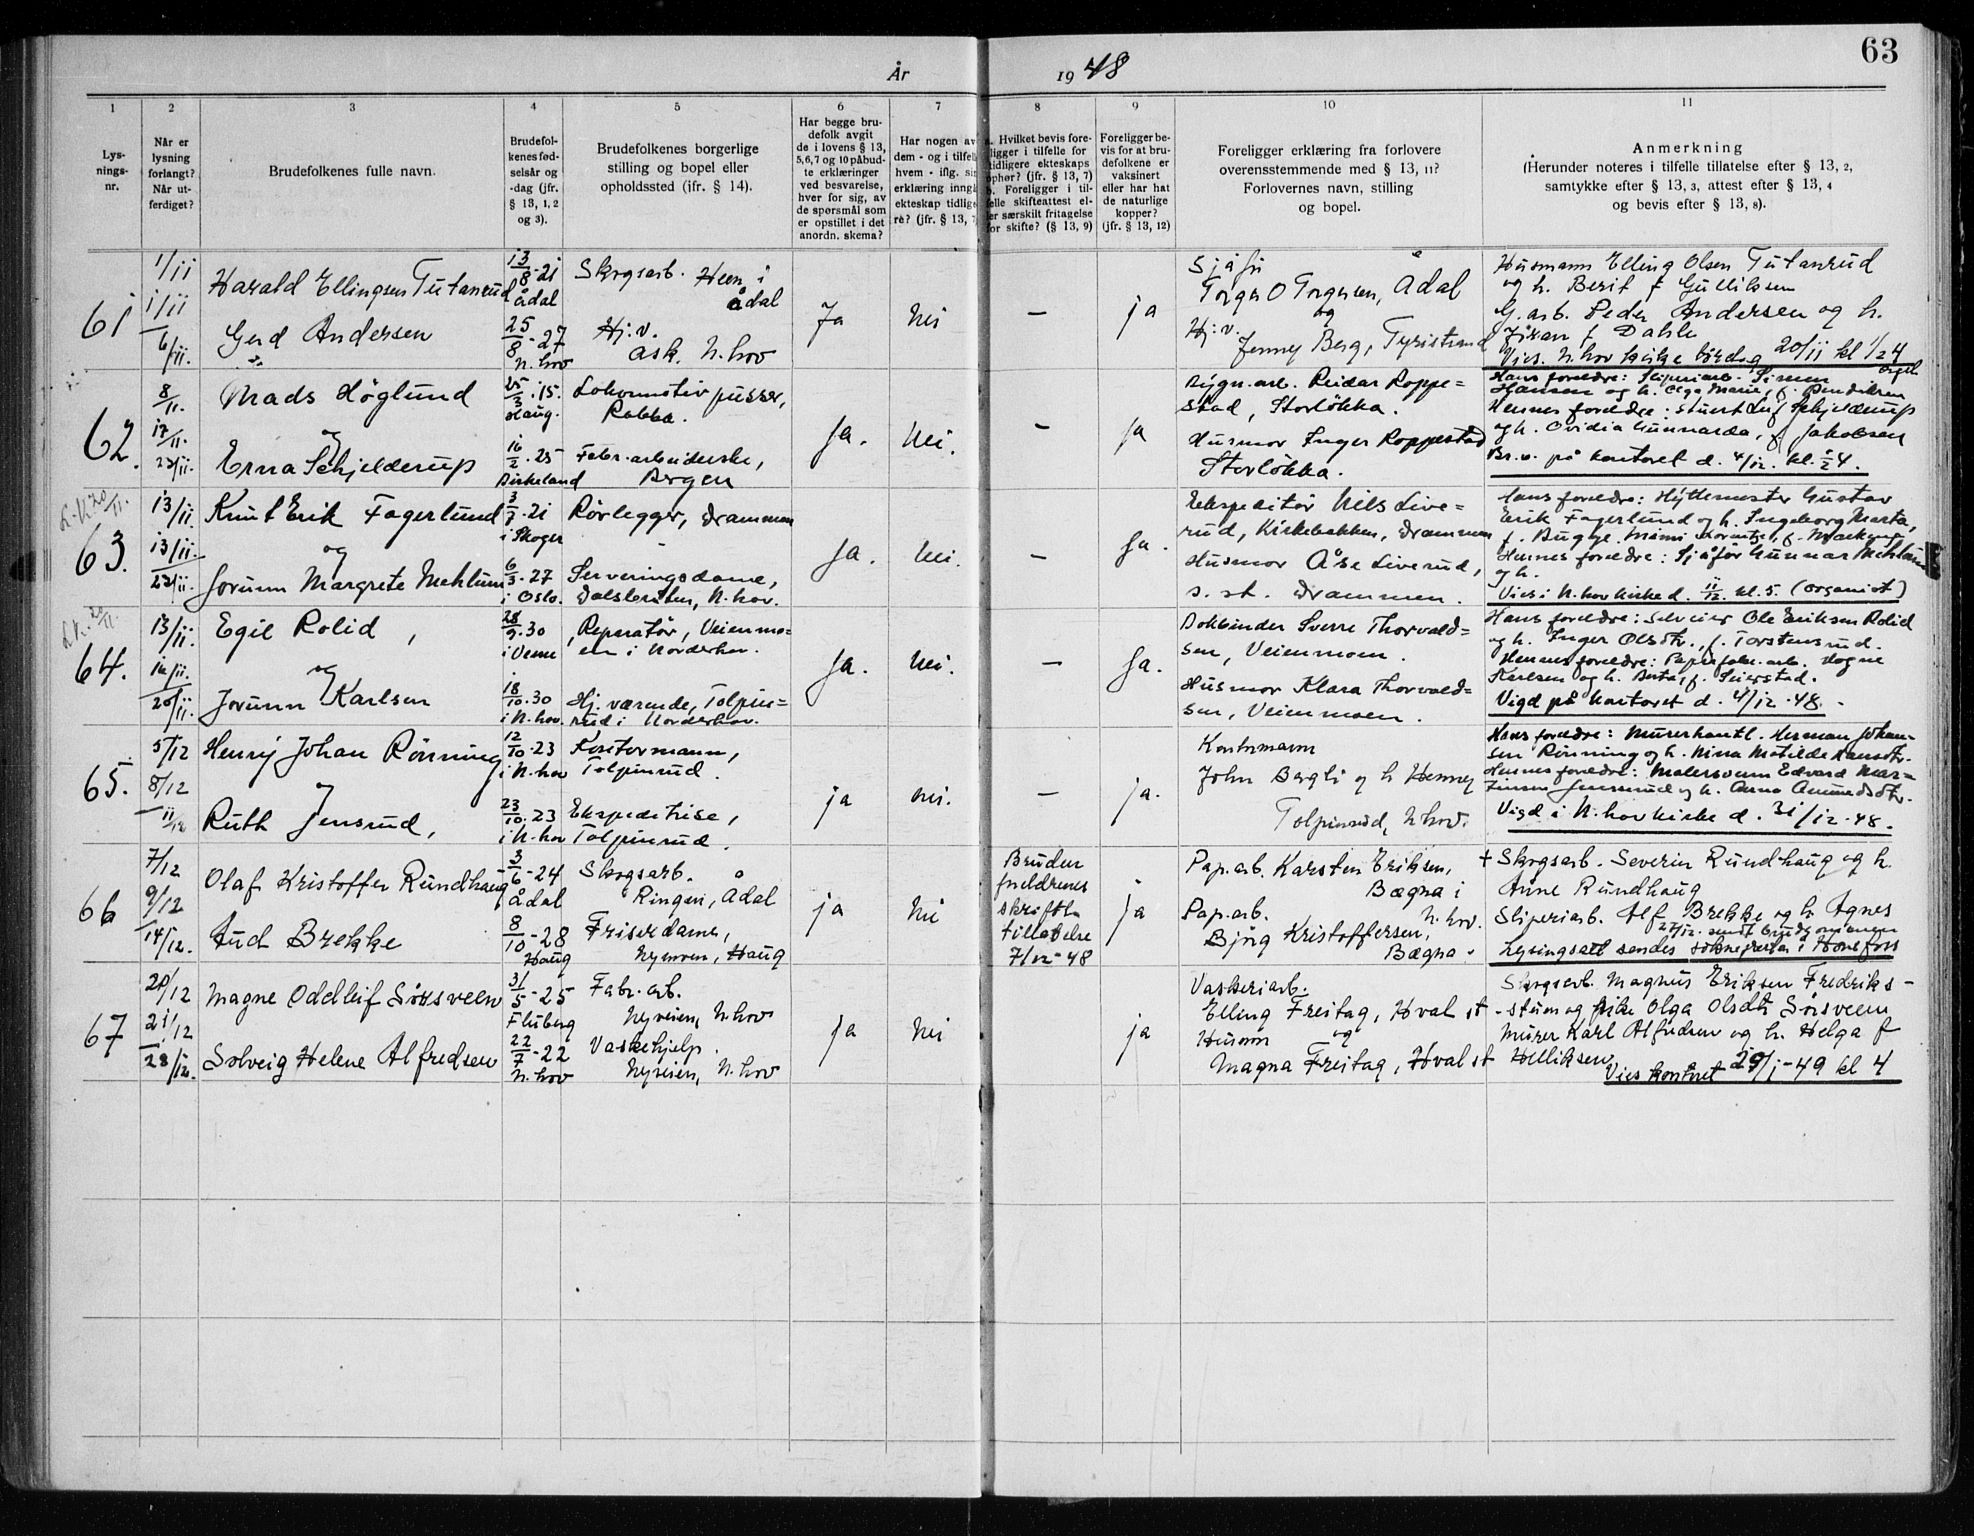 År 1948
63
1 2 3 4 5 6 7 8 9 10 11
Lys-
nings-
nr.
Når er
lysning
forlangt?
Når ut-
ferdiget?
Brudefolkenes fulle navn.
Brudefol-
kenes fød-
selsår og
-dag (jfr.
§ 13, 1, 2
og 3).
Brudefolkenes borgerlige
stilling og bopel eller
opholdssted (ifr. § 14).
Har begge bru-
defolk avgit
de i lovens § 13,
5,6,7 og 10 påbud-
te erklæringer
ved besvarelse,
hver for sig, av
de spørsmål som
er opstillet i det
anordn. skema?
Har nogen av
dem - og i tilfelle
hvem - iflg. sin
erklæring inngå
ekteskap tidlige-
re? (jfr. § 13, 7
a. Hvilket bevis fore-
ligger i tilfelle for
tidligere ekteskaps
ophør? (jfr. § 13, 7)
b. Foreligger i til-
felle skifteattest el-
ler særskilt fritagelse
for skifte? (§ 13, 9)
Foreligger be-
vis for at bru-
defolkene er
vaksinert
eller har hat
de naturlige
kopper?
(jfr. § 13, 12)
Foreligger erklæring fra forlovere
overensstemmende med § 13, 11?
Forlovernes navn, stilling
og bopel.
Anmerkning
(Herunder noteres i tilfelle tillatelse efter § 13, 2,
samtykke efter § 13, 3, attest efter § 13, 4
og bevis efter § 13, 8).
61
1/11
1/11
6/11.
Harald Ellingsen Tutanrud
Gerd Andersen
13/8-21
Ådal
25/8-27
N. hov
Skogsarb. Heen i
Ådal
Hj.v.
Ask. N. hov
Ja
Nei
—
ja
Sjåfør
Torger O Torgersen, Ådal
og
Hj.v.
Jenney Berg, Tyristrand
Husmann Elling Olsen Tutanrud
og h. Berit f Gulliksen
G. arb. Peder Andersen og h.
f Dahle
Vies. N. hov kirke lørdag 20/11 kl 1/2 4
orgel
62.
8/11.
17/11.
23/11.
Mads Höglund
og
Erna Schjelderup
25/3.15.
Haug.
16/2.25
Birkeland
Lokomotivpusser,
Rabba.
Fabr.arbeiderske,
Bergen
Ja.
Nei.
—
Ja
Bygn.arb. Reidar Roppe=
stad, Storløkka.
Husmor Inger Roppestad
Storløkka.
Hans foreldre: Sliperiarb. Simen
Hansen og h. Olga Marie, f. Bendiksen
Hennes foreldre: Stuert Schjelderup
og h. Ovidia Gunnarda, f. Jakobsen
Br.v. på kontoret d. 4/12. kl. 1/2 4.
L.K. 20/11.
63.
13/11.
13/11.
23/11.
Knut Erik Fagerlund
og
Jorunn Margrete Mehlum
3/7.21
i Skoger
6/3.27
i Oslo.
Rørlegger, Drammen
Serveringsdame,
Dalsbråten, N. hov.
Ja.
Nei.
—
Ja.
Ekspeditør Nils Live=
rud, Kirkebakken, Drammen
Husmor Åse Liverud,
s. st. Drammen.
Hans foreldre: Hyttemester Gustav
Erik Fagerlund og h. Ingeborg Marta,
f. Bugge.
Hennes foreldre: Sjåfør Gunnar Mehlum
og h.
Vies i N. hov kirke d. 11/12. kl. 5. (organist)
L.K. 20/11.
64.
13/11.
16/11.
20/11.
Egil Rolid,
og
Jorunn Karlsen
28/9.30
i Veme
18/10.30
i N. hov.
Reparatør, Veienmo=
en i Norderhov.
Hj. værende, Tolpin=
rud i Norderhov.
Ja.
Nei.
—
Ja.
Bokbinder Sverre Thorvald=
sen, Veienmoen.
Husmor Klara Thorvald=
sen, Veienmoen.
Hans foreldre: Selveier Ole Eriksen Rolid
og h. Inger Olsdtr., f. Torstensrud.
Hennes foreldre: Papirfabr. arb. Hogne
Karlsen og h. Berta, f. Seierstad.
Vigd på kontoret d. 4/12.48.
65.
5/12
8/12
11/12
Henry Johan Rønning
og
Ruth Jensrud,
12/10.23
i N. hov
23/10.23
i N. hov
Kontormann,
Tolpinrud.
Ekspeditrise,
Tolpinrud.
ja
nei.
—
ja.
Kontormann
John Bergli og h Henney
Tolpinrud, N. hov.
Hans foreldre: Murerhantl. Herman Johan-
sen Rønning og h. Nina Matilde Hansdtr.
Hennes foreldre: Malersvenn Edvard Mar=
tinsen Jensrud og h. Anna Amundsdtr.
Vigd i N. hov kirke d. 31/12.48.
66
7/12
9/12
14/12.
Olaf Kristoffer Rundhaug
Aud Brekke
3/6-24
Ådal
8/10-28
Haug
Skogsarb.
Ringen, Ådal
Friserdame,
Nymoen, Haug
ja
Nei
Bruden
foreldrenes
skriftl.
tillatelse
7/12-48
ja
Pap.arb. Karsten Eriksen,
Bægna i
Pap.arb. N. hov.
Bjørg Kristoffersen,
Bægna.
+ Skogsarb. Severin Rundhaug og h.
Anne Rundhaug
Sliperiarb. Alf Brekke og h. Agnes
27/12. sendt brudgommen
Lysingsatt sendes sokneprest i Hønefoss
67
20/12
21/12
28/12.
Magne Oddleif Sørsveen
Solveig Helene Alfredsen
31/5-25
Fluberg
22/7-22
N. hov
Fabr.arb.
Nyveien, N. hov
Vaskehjelp.
Nyveien, N. hov
ja
Nei
ja
Vaskeriarb.
Elling Freitag, Hval st
Husmor og
Magna Freitag, Hval st
Skogsarb. Magnus Eriksen Fredriks-
- stuen og pike Olga Olsdtr Sørsveen
Murer Karl Alfredsen og h. Helga f
Helliksen
Vies kontoret 29/1-49 kl 4